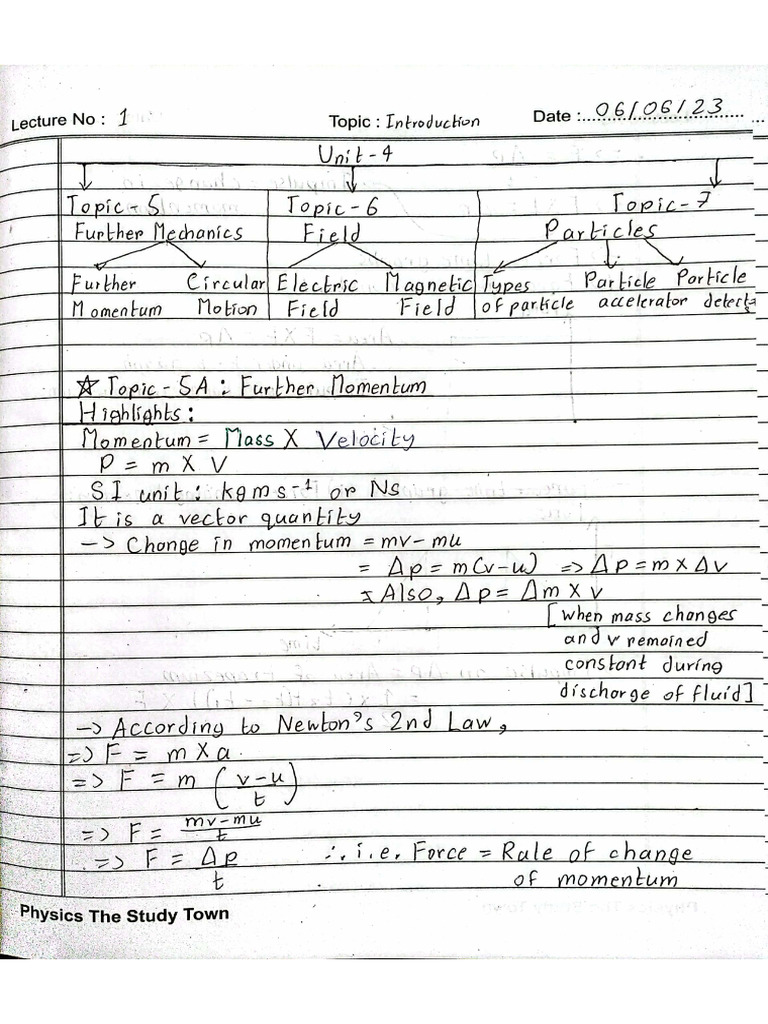 Lecture No : 1 Topic : Introduction Date : 06/06/23
Unit-4
Topic-5 Topic-6 Topic-7
Further Mechanics Field Particles
Further Circular Electric Magnetic Types Particle Particle
Momentum Motion Field Field of particle accelerator detect
☆ Topic - 5A : Further Momentum
Highlights :
Momentum = Mass X Velocity
P = m X V
SI unit : kgms⁻¹ or Ns
It is a vector quantity
-> Change in momentum = mv - mu
= Δp = m(v-u) => Δp = m x Δv
Also, Δp = Δm X v
[when mass changes
and v remained
constant during
discharge of fluid]
-> According to Newton's 2nd Law,
=> F = m X a.
=> F = m ( (v-u)/t )
=> F = (mv-mu)/t
=> F = Δp/t ∴ i.e. Force = Rule of change
of momentum
Physics The Study Town